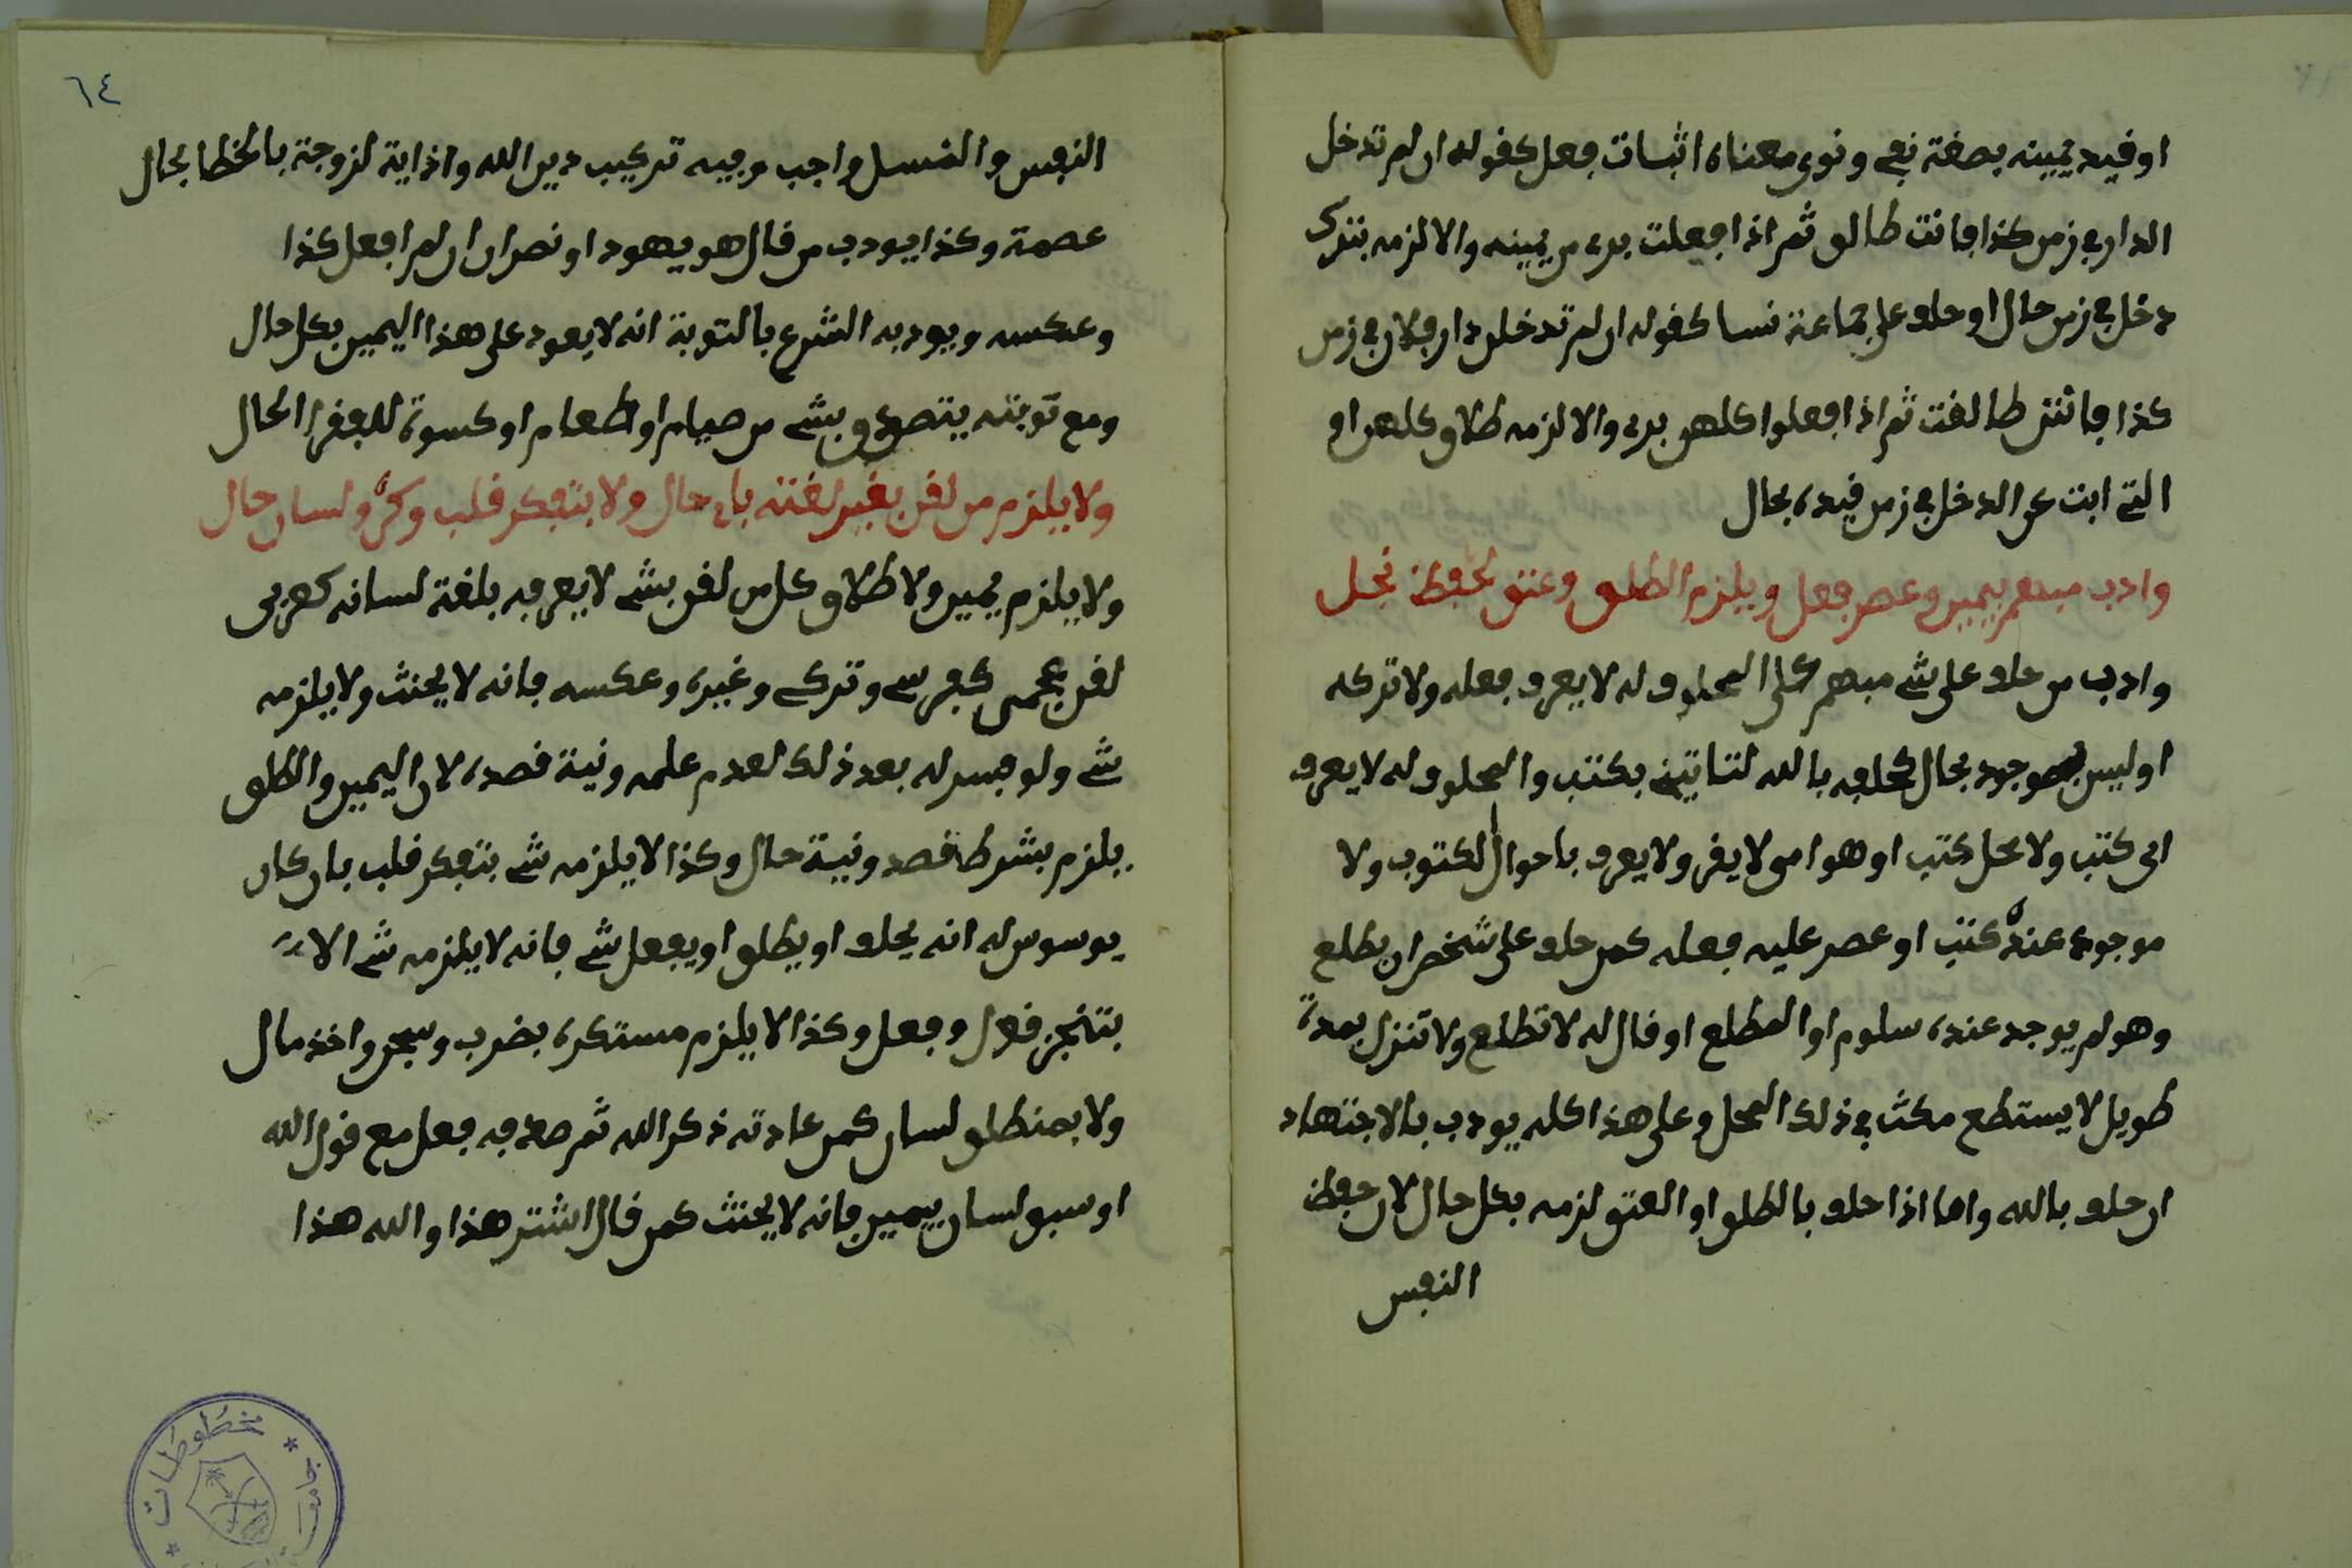 او فيد يمينه بصغة نفي ونوى معناه اثبات فعل كقوله ان لم تدخل
الدار في زمن كذا فانت طالق ثم اذا فعلت برء من يمينه والا لزمه بترك
دخل في زمن حال او حلف على جماعة نسا كقوله ان لم تدخلن دار فلان في زمن
كذا فانتن طالقت ثم اذا فعلوا كلهن برء والا لزمه طلاق كلهن او
التي ابت عن الدخل في زمن قيده بحال
وادب مبهم بيمين وعصر فعل ويلزم الطلق وعتق لحفظ نجل
وادب من حلف على شي مبهم كلى المحلوف له لا يعرف فعله ولا تركه
او ليس بموجود بحال كحلفه بالله لتاتيني بكتب والمحلوف له لا يعرف
اي كتب ولا محل كتب او هو امي لا يقر ولا يعرف باحوال لكتوب ولا
موجود عنده كتب او عصر عليه فعله كمن حلف على شخص ان يطلع
وهو لم يوجد عنده سلوم او المطلع او قال له لا تطلع ولا تنزل بمدة
طويل لا يستطع مكث في ذلك المحل وعلى هذا كله يودب بالاجتهاد
ان حلف بالله واما اذا حلف بالطلق او العتق لزمه بكل حال لان حفظ
النفس
٦٤
النفس والنسل واجب وفيه تركيب دين الله واذاية لزوجة بالخطا بحال
عصمة وكذا يودب من قال هو يهود او نصران ان لم افعل كذا
وعكسه ويودبه الشرع بالتوبة انه لا يعود على هذا اليمين بكل حال
ومع توبته يتصدق بشي من صيام او اطعام او كسوة للفقرا الحال
ولا يلزم من لقن بغير لغته باي حال ولا بتفكر قلب وكره ولسان حال
ولا يلزم يمين ولا طلاق كل من لقن بشي لا يعرفه بلغة لسانه كعربي
لقن بعجمي كفرسي وتركي وغيره وعكسه فانه لا يحنث ولا يلزمه
شي ولو فسر له بعد ذلك لعدم علمه ونية قصده لان اليمين والطلق
يلزم بشرط قصد ونية حال وكذا لا يلزمه شي بتفكر قلب بان كان
يوسوس له انه يحلف او يطلق او يفعل شي فانه لا يلزمه شي الا
بتنجز قول وفعل وكذا لا يلزم مستكره بضرب وسجن واخذ مال
ولا بمنطلق لسان كمن عادته ذكر الله ثم صدفه فعل مع قول الله
او سبق لسان بيمين فانه لا يحنث كمن قال اشتر هذا والله هذا
مخطوطات
جامعة